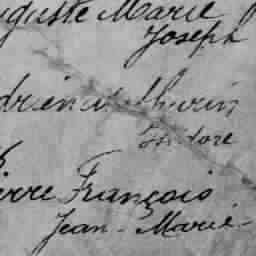 uguste Marie
Joseph
drien Mathurin
Isidore
ierre François
Jean-Marie